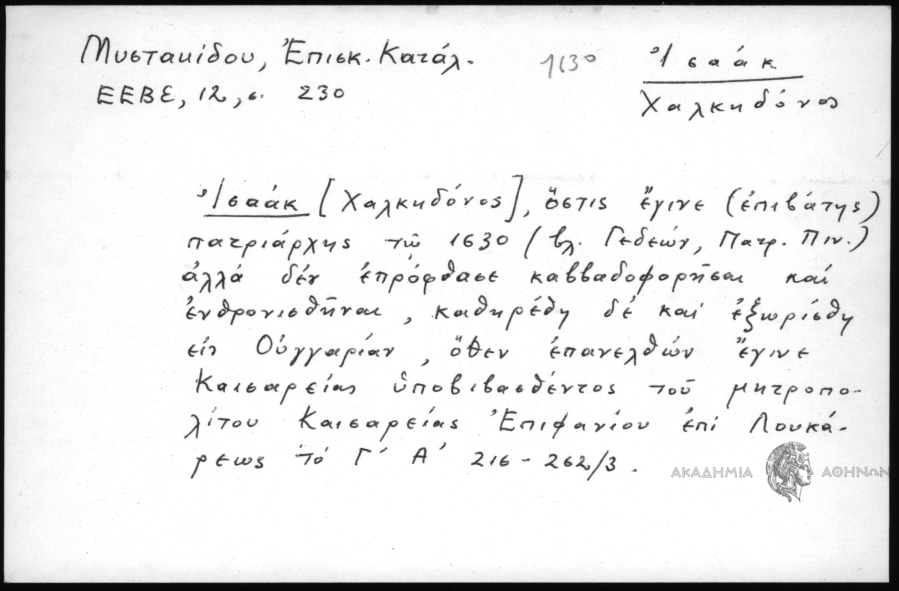 Μυστακίδου, Ἐπισκ. Κατάλ.
1630
Ἰσαάκ
ΕΕΒΣ, 12, σ. 230
Χαλκηδόνος
Ἰσαάκ [Χαλκηδόνος], ὅστις ἔγινε (ἐπιβάτης)
πατριάρχης τῷ 1630 (βλ. Γεδεών, Πατρ. Πιν.)
ἀλλά δέν ἐπρόφθασε καββαδοφορῆσαι καί
ἐνθρονισθῆναι, καθηρέθη δέ καί ἐξωρίσθη
εἰς Οὑγγαρίαν, ὅθεν ἐπανελθών ἔγινε
Καισαρείας ὑποβιβασθέντος τοῦ μητροπο-
λίτου Καισαρείας Ἐπιφανίου ἐπί Λουκά-
ρεως τό Γ' Α' 216 - 262/3.
ΑΚΑΔΗΜΙΑ ΑΘΗΝΩΝ